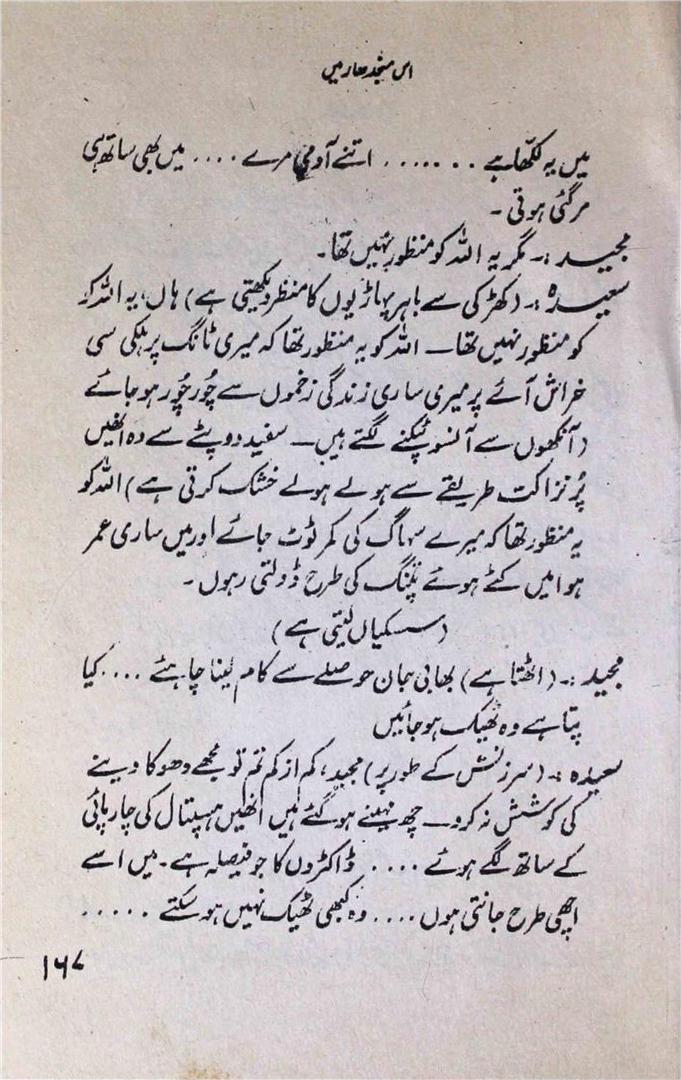 اس منجدھار میں
میں یہ لکھا ہے . . . . . . اتنے آدمی مرے . . . . میں بھی ساتھ ہی
مر گئی ہوتی ۔
مجید :۔ مگر یہ اللہ کو منظور نہیں تھا ۔
سعیدہ :۔ (کھڑکی سے باہر پہاڑیوں کا منظر دیکھتی ہے) ہاں، یہ اللہ کو
کو منظور نہیں تھا ــ اللہ کو یہ منظور تھا کہ میری ٹانگ پر ہلکی سی
خراش آئے پر میری ساری زندگی زخموں سے چُور چُور ہو جائے
(آنکھوں سے آنسو ٹپکنے لگتے ہیں ــ سفید دوپٹے سے وہ انھیں
پُر نزاکت طریقے سے ہولے ہولے خشک کرتی ہے) اللہ کو
یہ منظور تھا کہ میرے سہاگ کی کمر ٹوٹ جائے اور میں ساری عمر
ہوا میں کٹے ہوئے پتنگ کی طرح ڈولتی رہوں ۔
(سسکیاں لیتی ہے)
مجید :۔ (اٹھتا ہے) بھابی جان حوصلے سے کام لینا چاہئے . . . . کیا
پتا ہے وہ ٹھیک ہو جائیں
سعیدہ :۔ (سرزنش کے طور پر) مجید، کم از کم تم تو مجھے دھوکا دینے
کی کوشش نہ کرو ــ چھ مہینے ہو گئے ہیں انھیں ہسپتال کی چارپائی
کے ساتھ لگے ہوئے . . . . ڈاکٹروں کا جو فیصلہ ہے ۔ میں اسے
اچھی طرح جانتی ہوں . . . . وہ کبھی ٹھیک نہیں ہو سکتے . . . . .
۱۶۷